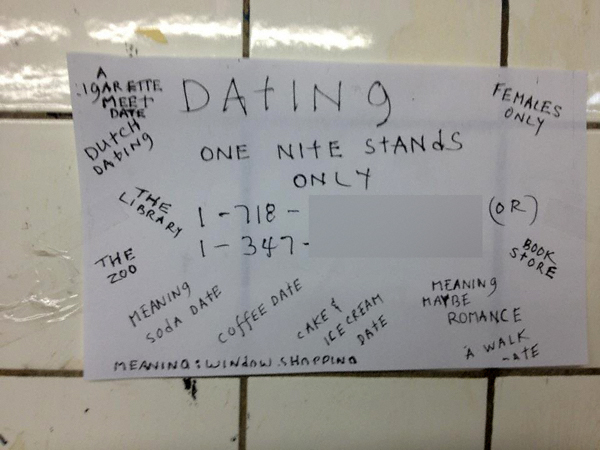 A
IGARETTE
MEET
DATE
DUTCH
DATING
DATING
FEMALES
ONLY
ONE NITE STANDS
ONLY
THE
LIBRARY
1-718-
(OR)
1-347-
THE
ZOO
BOOK
STORE
MEANING
SODA DATE
COFFEE DATE
CAKE &
ICE CREAM
DATE
MEANING
MAYBE
ROMANCE
A WALK
ATE
MEANING: WINDOW SHOPPING